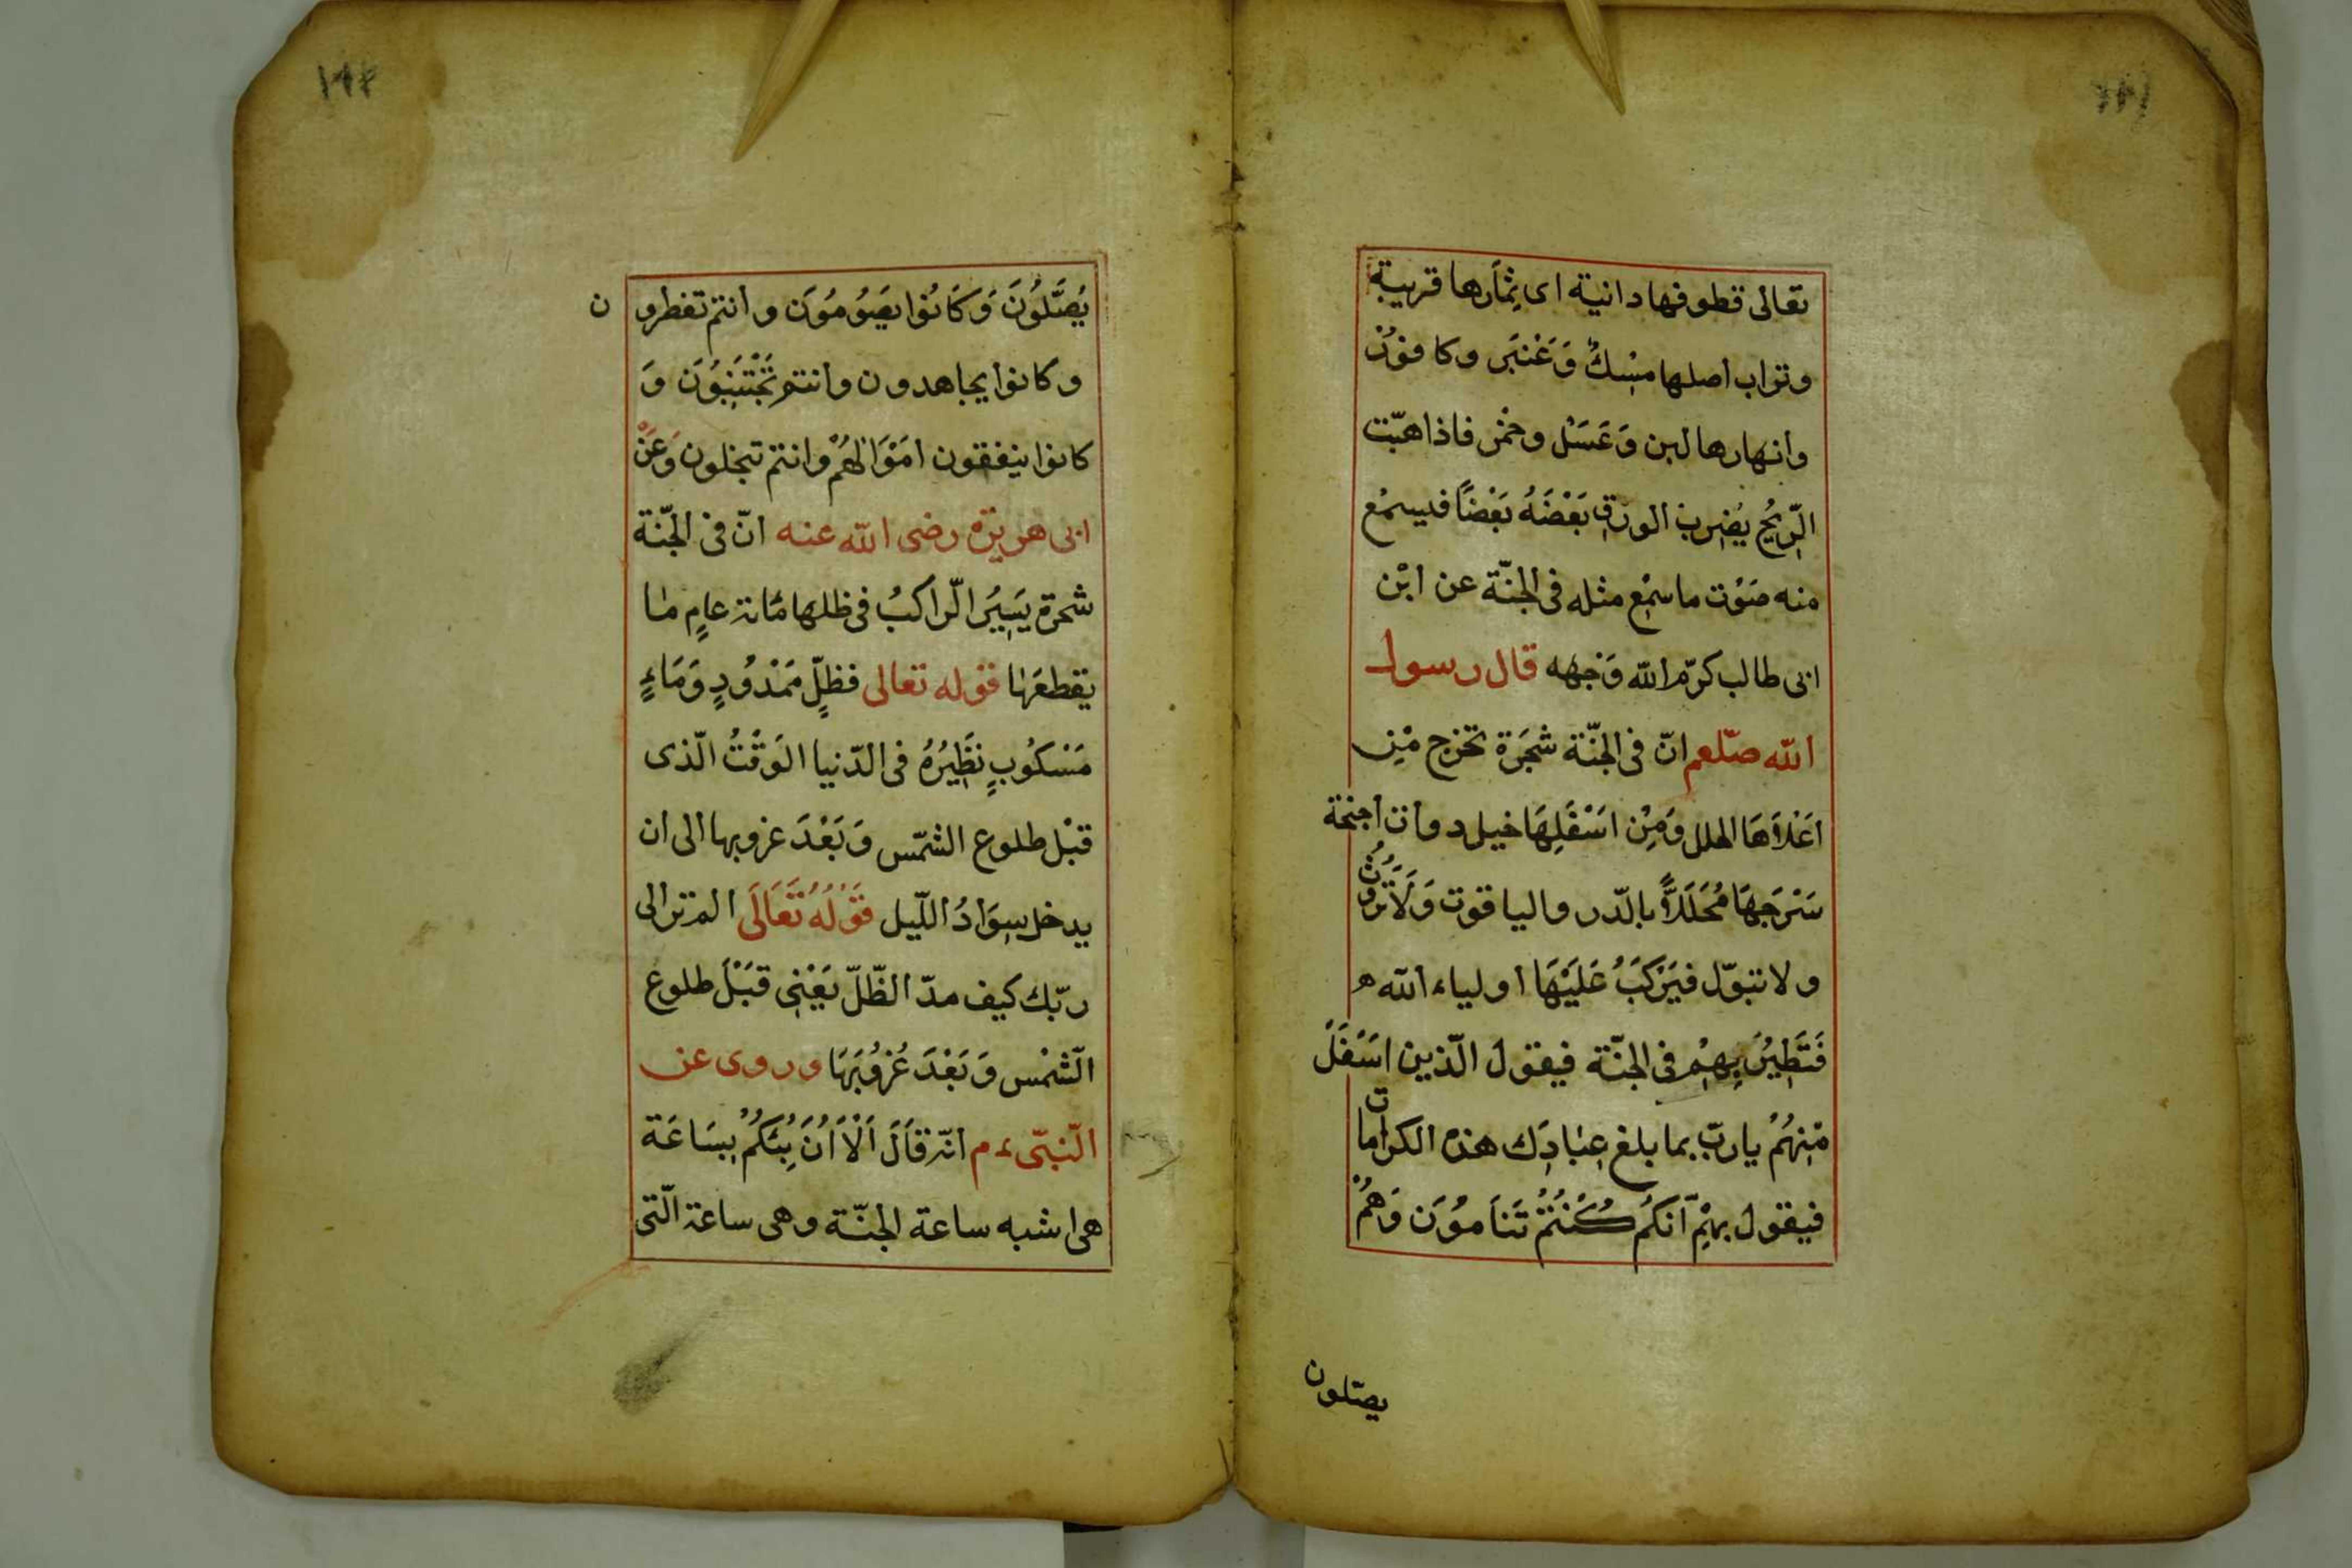 تعالى قطوفها دانية اى ثِمَارها قريبة
وتراب اصلها مِسْكٌ وَعَنبَر وكافورْ
وانهارها لبن وَعَسَلْ وخمْر فاذا هبّت
الرّيحُ يُضرب الورق بَعْضَهُ بَعْضًا فيسمْع
منه صَوْت ماسمْع مثله فى الجنّة عن ابْن
ابى طالب كرّم الله وَجهه قال رسول
الله صلّعم انّ فى الجنّة شجَرَة تخرج مْن
اَعْلاَهَا الحلل وَمِنْ اسْفَلِهَا خيل دوات اجنحة
سَرَجَهَا مُحَلَلاً بالدّر والياقوت وَلَاتَرُوْثُ
ولا تبوّل فيَرْكَبَ عَلَيْهَا اولياء الله
فَتَطِيْرُ بِهِمْ فى الجنّة فيقول الّذين اسَفَلَ
مْنِهُمْ يارب بما بلغ عِبَادَِك هذه الكرامات
فيقول بهِمْ آنكُم كُنْتُمْ تَنَامُوَن وَهُمْ
يصلّون
يُصَّلوُنَ وَكَانُوا يصَوُمُوَن وانتم تفطرون
وكانوا يجاهدون وانتم تَجْتَنِبوُن وَ
كانوا ينفقون اَمْوَالهُمْ وانتم تبخلون وَعَنْ
ابى هريرة رضى الله عنه انّ فى الجّنة
شجرة يَسِيرُ الرّاكبُ فى ظلها مائة عامٍ ما
يقطعَها قوله تعالى فظلٍّ مَمْدُودٍ وَمَاءٍ
مَسْكوُبٍ نَظِيْرُهُ فى الدّنيا الوَقْتُ الّذى
قبْل طلوع الشمّس وَبَعْدَ غروبها الى ان
يدخل سِوَادُ اللّيل قَوْلُهُ تَعَالَى الم تر الى
ربّك كيف مدّ الظّلّ يَعْنِى قبَْل طلوع
الشمْس وَبَعْدَ غُرُوبَهَا وروى عن
النّبىّ ءم انّه قاَلَ اَلاَ اُنَبِئكُمْ بِسَاعَة
هى اشبه ساعة الجنّة وهى ساعة الّتى